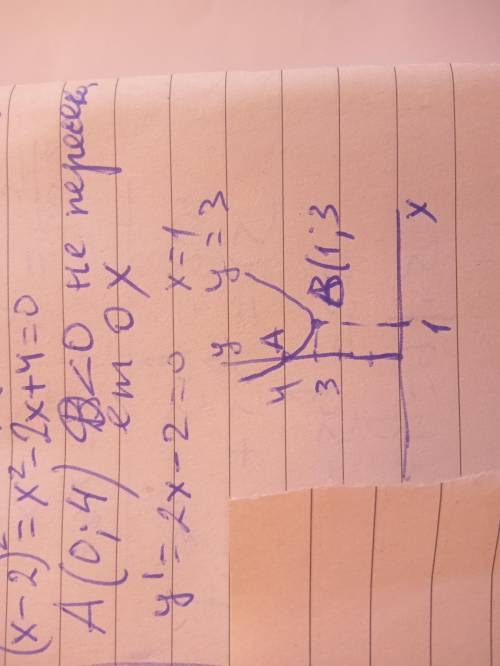 (x-2)² = x²-2x+4=0
A(0;4) D<0 не пересек
ет OX
y'=2x-2=0 x=1
y=3
y
A
4
3
B(1;3
1
x